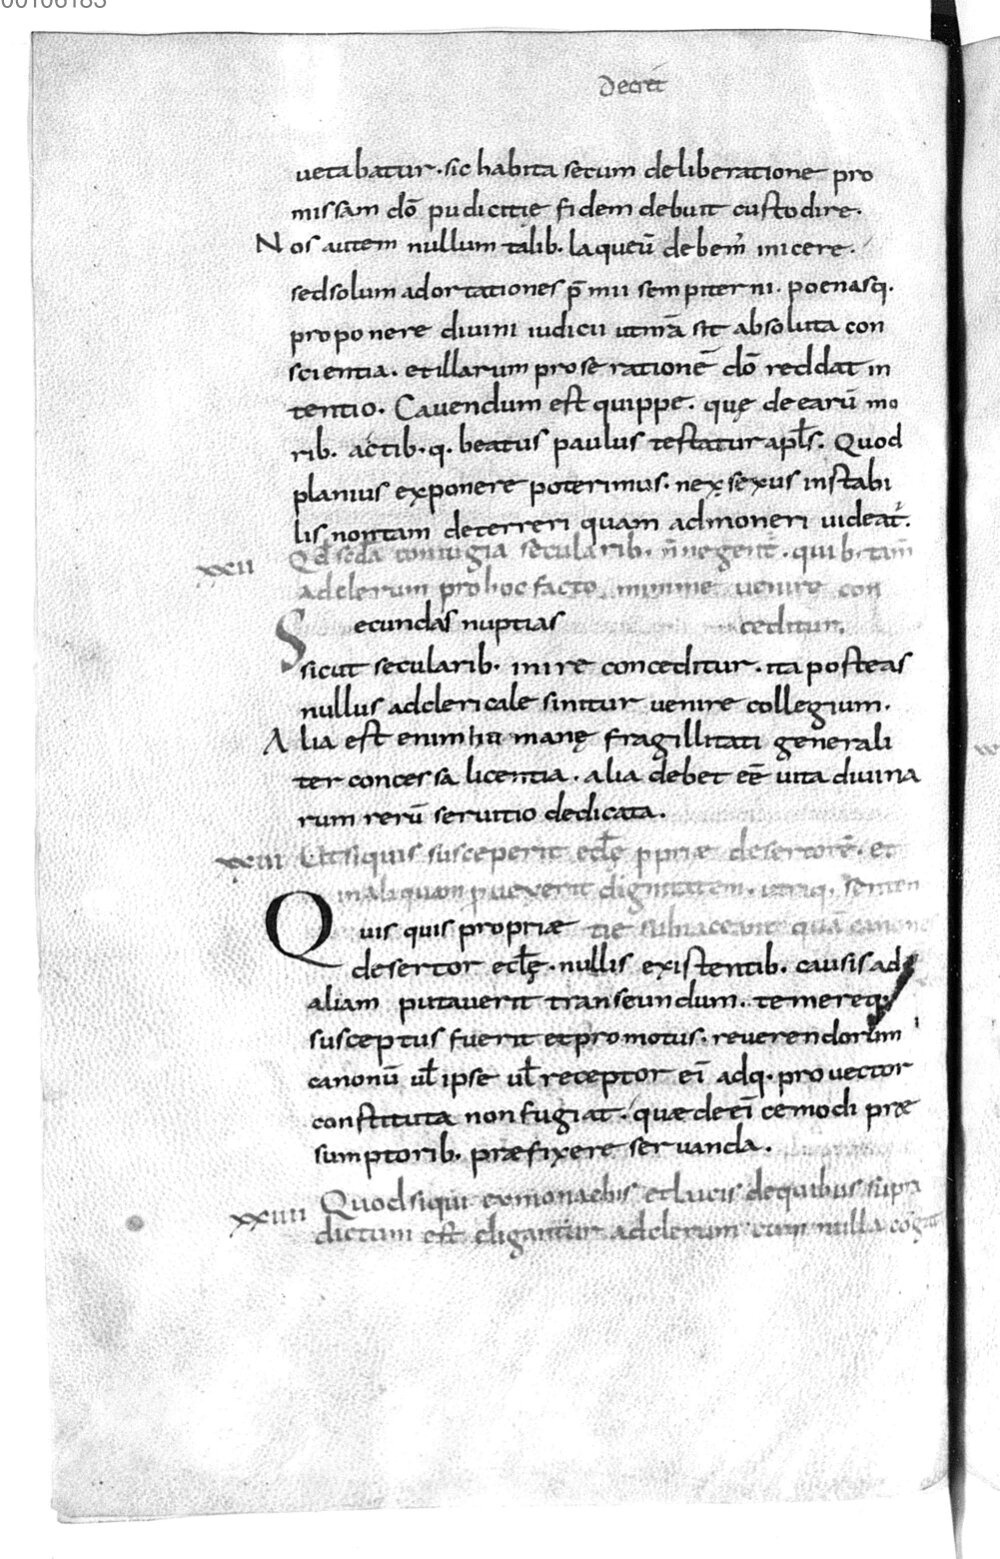 00106183
Decret
uetabatur. sic habita secum deliberatione pro
missam dō pudicitię fidem debuit custodire.
Nos autem nullum talib. laqueū debem inicere.
sed solum adortationes p̄mii sempiterni. poenasq.
proponere diuini iudicii ut nr̄a sit absoluta con
scientia. et illarum pro se rationē dō reddat in
tentio. Cauendum est quippe. quę de earū mo
rib. actib. q. beatus paulus testatur apl̄s. Quod
planius exponere poterimus. ne sexus instabi
lis non tam deterreri quam admoneri uideat.
xxii Qd̄ scd̄a coniugia secularib. n̄ negent. quib. tam̄
ad clerum pro hoc facto minime uenire con
Secundas nuptias ceditur.
sicut secularib. inire conceditur. ita posteas
nullus ad clericale sinitur uenire collegium.
Alia est enim humanę fragillitati generali
ter concessa licentia. alia debet eē uita diuina
rum rerū seruitio dedicata.
xxiii Ut siquis susceperit eclę ppriæ desertorē. et
in aliquam puexerit dignitatem. utriq. senten
Quis quis propriæ tie subiaceant quā canones
desertor eclę. nullis existentib. causis ad
aliam putauerit transeundum. temereq.
susceptus fuerit et promotus. reuerendorum
canonū ul̄ ipse ul̄ receptor ei adq. prouector
constituta non fugiat. quæ de ei cemodi præ
sumptorib. præfixere seruanda.
xxiiii Quod siqui ex monachis et laicis de quibus supra
dictum est eligantur ad clerum cum nulla